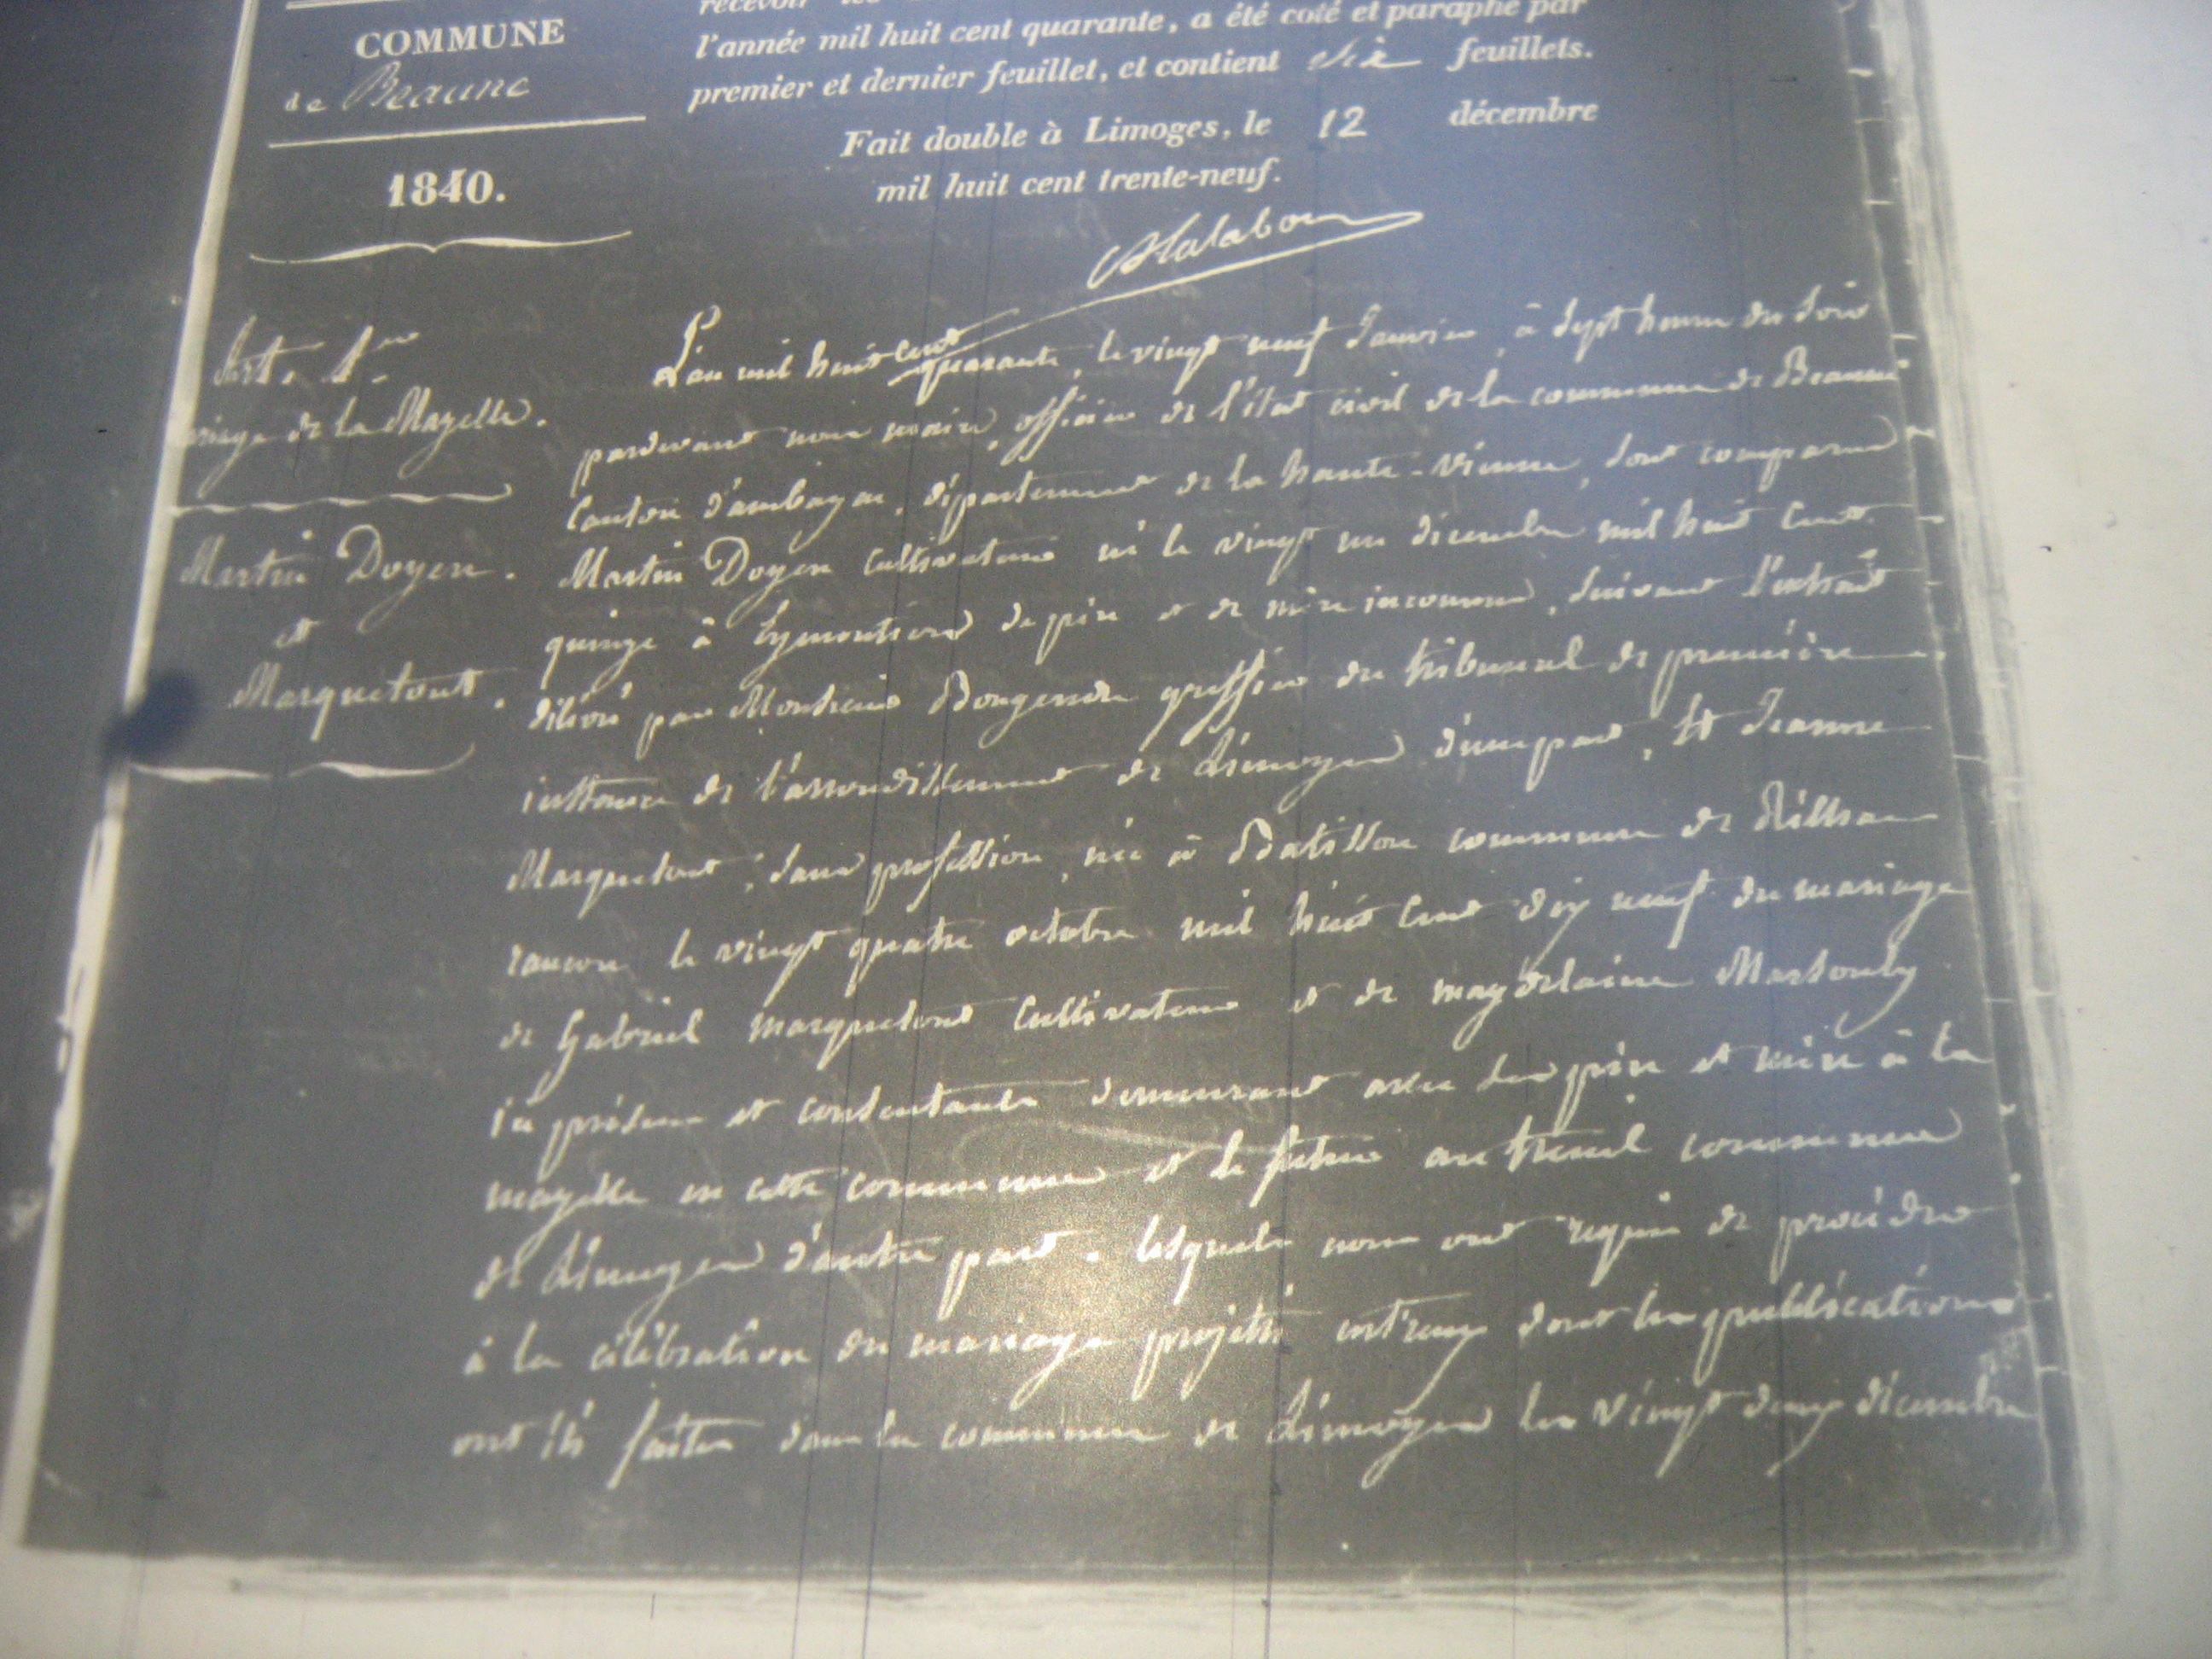 COMMUNE
de Beaune
1840.
recevoir les
l'année mil huit cent quarante, a été coté et paraphé par
premier et dernier feuillet, et contient six feuillets.
Fait double à Limoges, le 12 décembre
mil huit cent trente-neuf.
Art. 1er
ariage de la Mazelle.
Martin Doyen.
et
Marquetout.
L'an mil huit cent quarante, le vingt neuf Janvier, à Sept heures du Soir
pardevant nous maire, officier de l'état civil de la commune de Beaune
Canton d'ambazac, département de la haute-Vienne, sont comparus
Martin Doyen Cultivateur né le vingt un décembre mil huit Cent
quinze à Eymoutiers de père et de mère inconnus, Suivant l'extrait
délivré par Monsieur greffier du tribunal de première
instance de l'arrondissement de Limoges d'une part, Et Jeanne
Marquetout, Sans profession, née à Batisson commune de Rilhac
rancon le vingt quatre octobre mil huit Cent dix neuf du mariage
de Gabriel Marquetout Cultivateur et de magdelaine
ici présens et consentants demeurant avec Ses père et mère à la
mazelle en cette commune et le futur au treuil commune
de Limoges d'autre part. lesquels nous ont requis de procéder
à la célébration du mariage projetté entr'eux dont les publications
ont été faites dans la commune de Limoges les vingt deux décembre